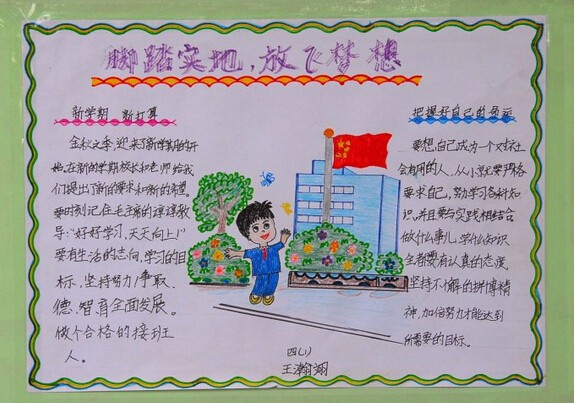 脚踏实地，放飞梦想
新学期 新打算
金秋之季，迎来了新学期的开
始，在新的学期校长和老师给我
们提出了新的要求和新的希望
要时刻记住毛主席的谆谆教
导：“好好学习，天天向上！”
要有生活的志向，学习的目
标，坚持努力争取、
德、智、育全面发展。
做个合格的接班
人。
把握好自己的命运
要想自己成为一个对社
会有用的人，从小就要严格
要求自己，努力学习各科知
识，并且要与实践相结合
做什么事儿，学什么知识
全都要有认真的态度，
坚持不懈的拼博精
神，加倍努力才能达到
所需要的目标。
四（1）
王瀚翊